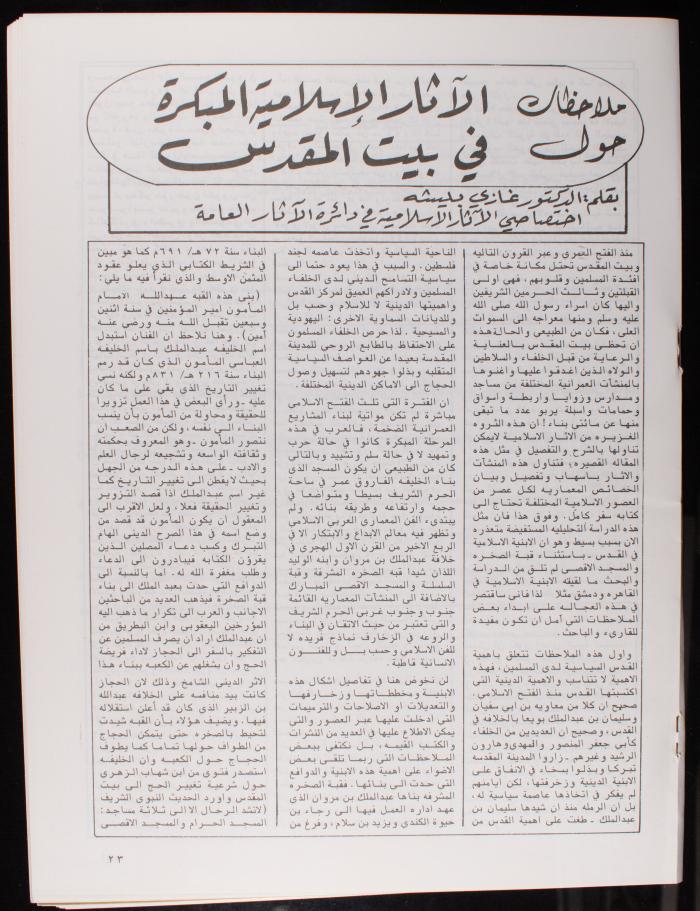 ملاحظات حول
الآثار الإسلامية المبكرة
في بيت المقدس
بقلم: الدكتور غازي بيشه
اختصاصي الآثار الاسلامية في دائرة الآثار العامة
منذ الفتح العمري وعبر القرون التاليه
وبيت المقدس تحتل مكانة خاصة في
افئدة المسلمين وقلوبهم، فهي اولى
القبلتين وثالث الحرمين الشريفين
واليها كان اسراء رسول الله صلى الله
عليه وسلم ومنها معراجه الى السموات
العلى، فكان من الطبيعي والحالة هذه
ان تحظى بيت المقدس بالعناية
والرعاية من قبل الخلفاء والسلاطين
والولاه الذين اغدقوا عليها واغنوها
بالمنشآت العمرانية المختلفة من مساجد
ومدارس وزوايا واربطة واسواق
وحمامات واسبلة يربو عدد ما تبقى
منها عن مائتي بناء! ان هذه الثروه
الغزيره من الاثار الاسلامية لايمكن
تناولها بالشرح والتفصيل في مثل هذه
المقاله القصيره؛ فتناول هذه المنشآت
والاثار باسهاب وتفصيل وبيان
الخصائص المعماريه لكل عصر من
العصور الاسلامية المختلفة تحتاج الى
كتابه سفر كامل. وفوق هذا فان مثل
هذه الدراسة التحليليه المستفيضة متعذره
الان بسبب بسيط وهو ان الابنية الاسلامية
في القدس ـ باستثناء قبة الصخره
والمسجد الاقصى لم تلق من الدراسة
والبحث ما لقيته الابنية الاسلامية في
القاهره ودمشق مثلا لذا فاني ساقتصر
في هذه العجاله على ابداء بعض
الملاحظات التي آمل ان تكون مفيدة
للقارىء والباحث.
واول هذه الملاحظات تتعلق باهمية
القدس السياسية لدى المسلمين، فهذه
الاهمية لا تتناسب والاهمية الدينية التي
اكتسبتها القدس منذ الفتح الاسلامي.
صحيح ان كلا من معاويه بن ابي سفيان
وسليمان بن عبدالملك بويعا بالخلافه في
القدس، وصحيح ان العديدين من الخلفاء
كأبي جعفر المنصور والمهدي وهارون
الرشيد وغيرهم ـ زاروا المدينه المقدسه
تبركا وبذلوا بسخاء في الانفاق على
الابنية الدينية وزخرفتها، لكن ايامنهم
لم يفكر في اتخاذها عاصمة سياسية له،
بل ان الرمله منذ ان شيدها سليمان بن
عبدالملك ـ طغت على اهمية القدس من
الناحية السياسية واتخذت عاصمه لجند
فلسطين. والسبب في هذا يعود حتما الى
سياسية التسامح الديني لدى الخلفاء
المسلمين ولادراكهم العميق لمركز القدس
واهميتها الدينية لا للاسلام وحسب بل
وللديانات السماوية الاخرى: اليهودية
والمسيحية. لذا حرص الخلفاء المسلمون
على الاحتفاظ بالطابع الروحي للمدينة
المقدسة بعيدا عن العواصف السياسية
المتقلبه وبذلوا جهودهم لتسهيل وصول
الحجاج الى الاماكن الدينية المختلفة.
ان الفترة التى تلت الفتح الاسلامي
مباشرة لم تكن مواتية لبناء المشاريع
العمرانية الضخمة، فالعرب في هذه
المرحلة المبكرة كانوا في حالة حرب
وتمهيد لا في حالة سلم وتشييد وبالتالي
كان من الطبيعي ان يكون المسجد الذي
بناه الخليفه الفاروق عمر في ساحة
الحرم الشريف بسيطا ومتواضعا في
حجمه وارتفاعه وطريقه بنائه. ولم
يبتدىء الفن المعماري العربي الاسلامي
وتظهر فيه معالم الابداع والابتكار الا في
الربع الاخير من القرن الاول الهجري في
خلافة عبدالملك بن مروان وابنه الوليد
اللذان شيدا قبه الصخره المشرفة وقبة
السلسلة والمسجد الاقصى المبارك
بالاضافة الى المنشآت المعماريه القائمة
جنوب وجنوب غربي الحرم الشريف
والتي تعتبر من حيث الاتقان في البناء
والروعه في الزخارف نماذج فريده لا
للفن الاسلامي وحسب بل وللفنون
الانسانية قاطبة.
لن نخوض هنا في تفاصيل اشكال هذه
الابنية ومخططاتها وزخارفها
والتعديلات او الاصلاحات والترميمات
التي ادخلت عليها عبر العصور والتي
يمكن الاطلاع عليها في العديد من النشرات
والكتب القيمه، بل نكتفي ببعض
الملاحظات التي ربما تلقي بعض
الاضواء على اهمية هذه الابنية والدوافع
التي حدت الى بنائها. فقبة الصخره
المشرفه بناها عبدالملك بن مروان الذي
عهد اداره العمل فيها الى رجاء بن
حيوة الكندي ويزيد بن سلام، وفرغ من
البناء سنة ٧٢ هـ/ ٦٩١م كما هو مبين
في الشريط الكتابي الذي يعلو عقود
المثمن الاوسط والذي نقرأ فيه ما يلي:
(بنى هذه القبه عبدالله الامام
المأمون امير المؤمنين في سنة اثنين
وسبعين تقبل الله منه ورضي عنه
آمين). وهنا نلاحظ ان الفنان استبدل
اسم الخليفه عبدالملك باسم الخليفه
العباسي المأمون الذي كان قد رمم
البناء سنة ٢١٦ هـ/ ٨٣١م ولكنه نسى
تغيير التاريخ الذي بقى على ما كان
عليه ـ ورأى البعض في هذا العمل تزويرا
للحقيقة ومحاولة من المأمون بأن ينسب
البناء الى نفسه، ولكن من الصعب ان
نتصور المأمون ـ وهو المعروف بحكمته
وثقافته الواسعه وتشجيعه لرجال العلم
والادب ـ على هذه الدرجه من الجهل
بحيث لا يفطن الى تغيير التاريخ كما
غير اسم عبدالملك اذا قصد التزوير
وتغيير الحقيقة فعلا، ولعل الاقرب الى
المعقول ان يكون المأمون قد قصد من
وضع اسمه في هذا الصرح الديني الهام
التبرك وكسب دعاء المصلين الذين
يقرؤن الكتابه فيبادرون الى الدعاء
وطلب مغفرة الله له. اما بالنسبة الى
الدوافع التي حدت بعبد الملك الى بناء
قبة الصخرة فيذهب العديد من الباحثين
الاجانب والعرب الى تكرار ما ذهب اليه
المؤرخين اليعقوبي وابن البطريق من
ان عبدالملك اراد ان يصرف المسلمين عن
التفكير بالسفر الى الحجاز لاداء فريضة
الحج وان يشغلهم عن الكعبه ببناء هذا
الاثر الديني الشامخ وذلك لان الحجاز
كانت بيد منافسه على الخلافه عبدالله
بن الزبير الذي كان قد أعلن استقلاله
فيها. ويضيف هؤلاء بأن القبه شيدت
لتحيط بالصخره حتى يتمكن الحجاج
من الطواف حولها تماما كما يطوف
الحجاج حول الكعبه وان الخليفه
استصدر فتوى من ابن شهاب الزهري
حول شرعية تغيير الحج الى بيت
المقدس واورد الحديث النبوي الشريف
(لاتشد الرحال الا الى ثلاثة مساجد:
المسجد الحرام والمسجد الاقصى
٢٣